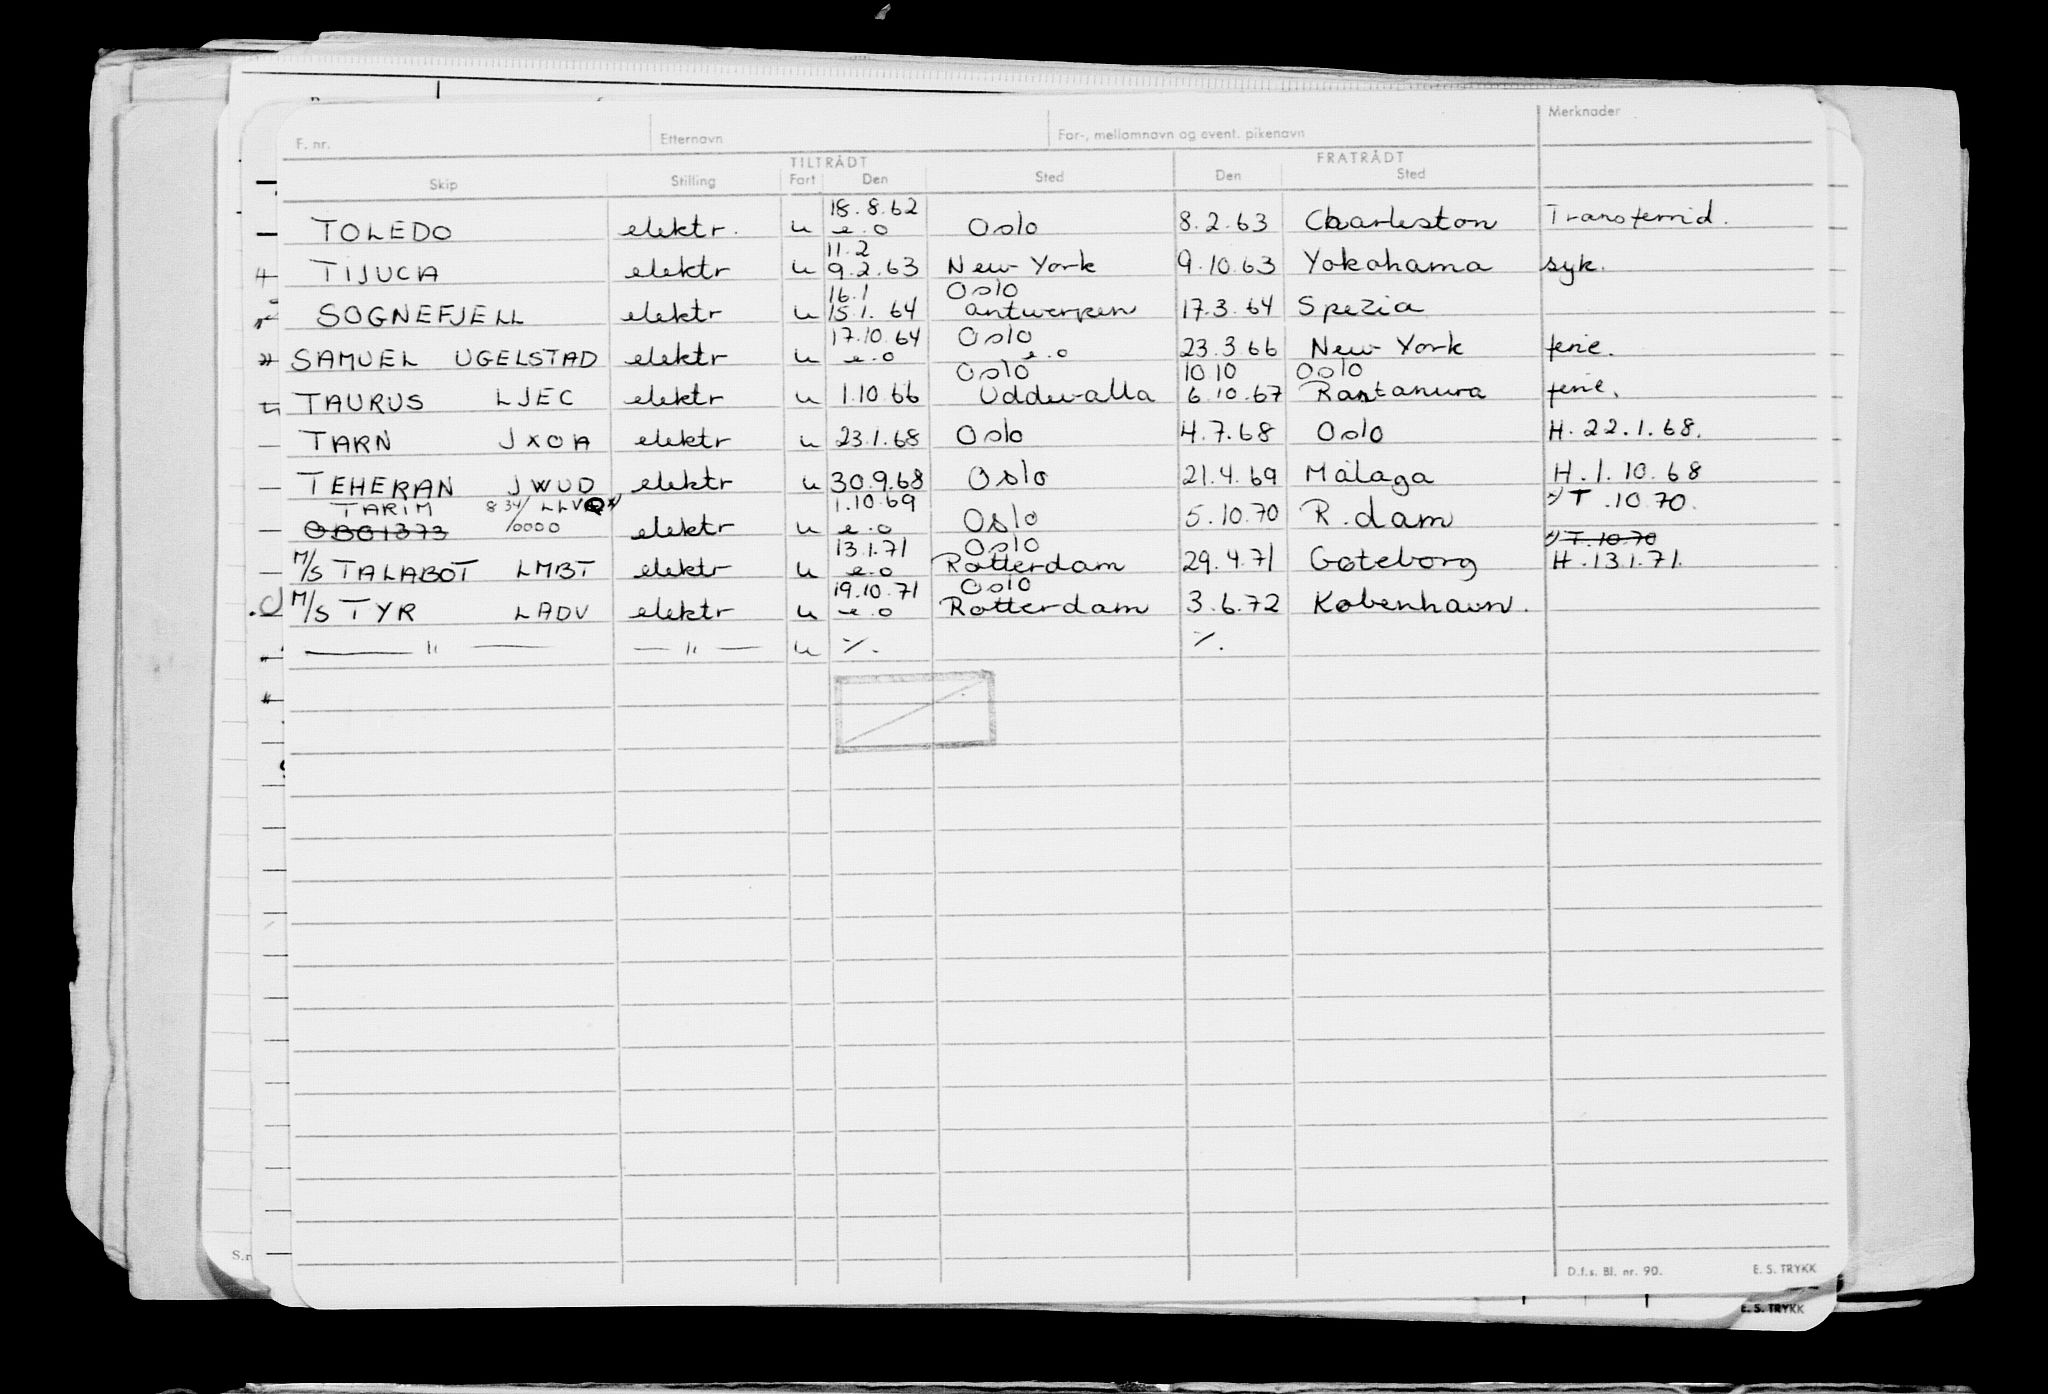 F. nr. Etternavn For-, mellomnavn og event. pikenavn Merknader
TILTRÅDT FRATRÅDT
Skip Stilling Fart Den Sted Den Sted
18.8.62
TOLEDO elektr. u e.o Oslo 8.2.63 Charleston Transferrid.
11.2
TIJUCA elektr u 9.2.63 New York 9.10.63 Yokohama syk.
16.1 Oslo
SOGNEFJELL elektr u 15.1.64 antwerpen 17.3.64 Spezia
17.10.64 Oslo
SAMUEL UGELSTAD elektr u e.o e.o 23.3.66 New York ferie.
Oslo 10.10 Oslo
TAURUS LJEC elektr u 1.10.66 Uddevalla 6.10.67 Rastanura ferie.
TARN JXOA elektr u 23.1.68 Oslo 4.7.68 Oslo H. 22.1.68.
TEHERAN JWUD elektr u 30.9.68 Oslo 21.4.69 Málaga H. 1.10.68
TARIM 834/ LLVQ x) 1.10.69 x) T .10.70.
OBO1373 /0000 elektr u e.o Oslo 5.10.70 R.dam
13.1.71 Oslo x) T.10.70
M/S TALABOT LMBT elektr u e.o Rotterdam 29.4.71 Gøteborg H. 13.1.71.
19.10.71 Oslo
M/S TYR LADV elektr u e.o Rotterdam 3.6.72 København.
— " — — " — u ٪. ٪.
D.f.s. Bl. nr. 90. E. S. TRYKK
E. S. TRYKK